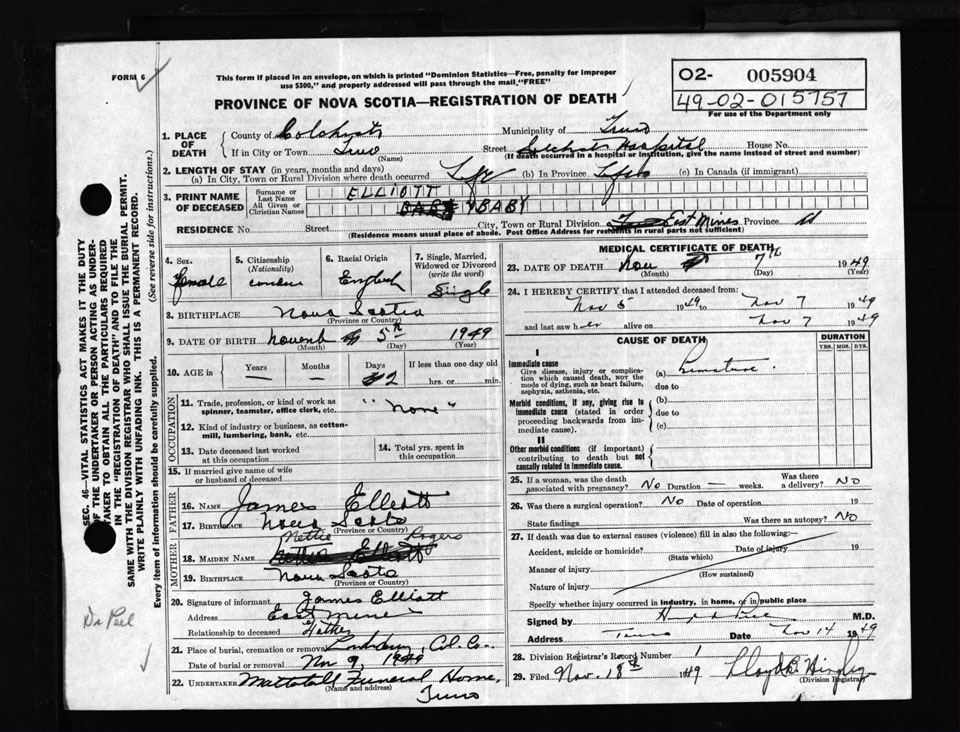 FORM 6
This form if placed in an envelope, on which is printed "Dominion Statistics—Free, penalty for improper
use $300," and properly addressed will pass through the mail "FREE"
02- 005904
49-02-015757
For use of the Department only
PROVINCE OF NOVA SCOTIA—REGISTRATION OF DEATH
1. PLACE OF DEATH
County of Colchester Municipality of Truro
If in City or Town Truro (Name) Street Colchester Hospital House No.
(If death occurred in a hospital or institution, give the name instead of street and number)
2. LENGTH OF STAY (in years, months and days)
(a) In City, Town or Rural Division where death occurred (b) In Province (c) In Canada (if immigrant)
3. PRINT NAME OF DECEASED
Surname or Last Name ELLIOTT
All Given or Christian Names BABY
RESIDENCE No. Street City, Town or Rural Division East Mines Province
(Residence means usual place of abode. Post Office Address for residents in rural parts not sufficient)
4. Sex Female
5. Citizenship (Nationality)
6. Racial Origin English
7. Single, Married, Widowed or Divorced (write the word) Single
8. BIRTHPLACE Nova Scotia
(Province or Country)
9. DATE OF BIRTH 5th 1949
(Month) (Day) (Year)
10. AGE in Years — Months — Days 2 If less than one day old hrs. or min.
OCCUPATION
11. Trade, profession, or kind of work as spinner, teamster, office clerk, etc. "None"
12. Kind of industry or business, as cotton-mill, lumbering, bank, etc.
13. Date deceased last worked at this occupation
14. Total yrs. spent in this occupation
15. If married give name of wife or husband of deceased
FATHER
16. NAME James Elliott
17. BIRTHPLACE Nova Scotia
(Province or Country)
MOTHER
Nettie Rogers
18. MAIDEN NAME
19. BIRTHPLACE Nova Scotia
(Province or Country)
20. Signature of informant James Elliott
Address East Mines
Relationship to deceased Father
21. Place of burial, cremation or removal Col. Co.
Date of burial or removal Nov 9, 1949
22. UNDERTAKER Mattatall Funeral Home,
(Name and address) Truro
MEDICAL CERTIFICATE OF DEATH
23. DATE OF DEATH Nov 7th 1949
(Month) (Day) (Year)
24. I HEREBY CERTIFY that I attended deceased from:
Nov 5 1949 to Nov 7 1949
and last saw her alive on Nov 7 1949
CAUSE OF DEATH
DURATION
YRS. MOS. DYS.
I
Immediate cause
Give disease, injury, or complication which caused death, not the mode of dying, such as heart failure, asphyxia, asthenia, etc.
(a) Premature.
due to
Morbid conditions, if any, giving rise to immediate cause (stated in order proceeding backwards from immediate cause).
(b)
due to
(c)
II
Other morbid conditions (if important) contributing to death but not causally related to immediate cause.
25. If a woman, was the death associated with pregnancy? No Duration — weeks. Was there a delivery? No
26. Was there a surgical operation? No Date of operation 19
State findings Was there an autopsy? No
27. If death was due to external causes (violence) fill in also the following:—
Accident, suicide or homicide? (State which) Date of injury 19
Manner of injury (How sustained)
Nature of injury
Specify whether injury occurred in industry, in home, or in public place
Signed by M.D.
Address Truro Date Nov 14 1949
28. Division Registrar's Record Number 1
29. Filed Nov. 18th 1949
(Division Registrar)
SEC. 46—VITAL STATISTICS ACT MAKES IT THE DUTY
OF THE UNDERTAKER OR PERSON ACTING AS UNDERTAKER
TO OBTAIN ALL THE PARTICULARS REQUIRED
IN THE "REGISTRATION OF DEATH" AND TO FILE THE
SAME WITH THE DIVISION REGISTRAR WHO SHALL ISSUE THE BURIAL PERMIT.
WRITE PLAINLY WITH UNFADING INK. THIS IS A PERMANENT RECORD.
Every item of information should be carefully supplied. (See reverse side for instructions.)
Dr Peel